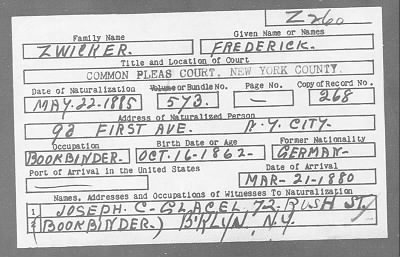 Z260
Family Name Given Name or Names
ZWICKER. FREDERICK.
Title and Location of Court
COMMON PLEAS COURT, NEW YORK COUNTY
Date of Naturalization Volume or Bundle No. Page No. Copy of Record No.
MAY-22-1885 573. — 268
Address of Naturalized Person
92 FIRST AVE. N.Y. CITY.
Occupation Birth Date or Age Former Nationality
BOOKBINDER- OCT. 16-1862- GERMAN-
Port of Arrival in the United States Date of Arrival
MAR- 21-1880
Names, Addresses and Occupations of Witnesses To Naturalization
1 JOSEPH. C- GLACEL 72- RUSH ST,
2 (BOOKBINDER.) B'KLYN, N.Y.